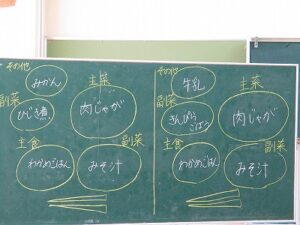 その他
みかん
主菜
副菜
ひじき煮
肉じゃが
主食
副菜
わかめごはん
みそ汁
その他
牛乳
主菜
副菜
きんぴら
ごぼう
肉じゃが
主食
副菜
わかめごはん
みそ汁